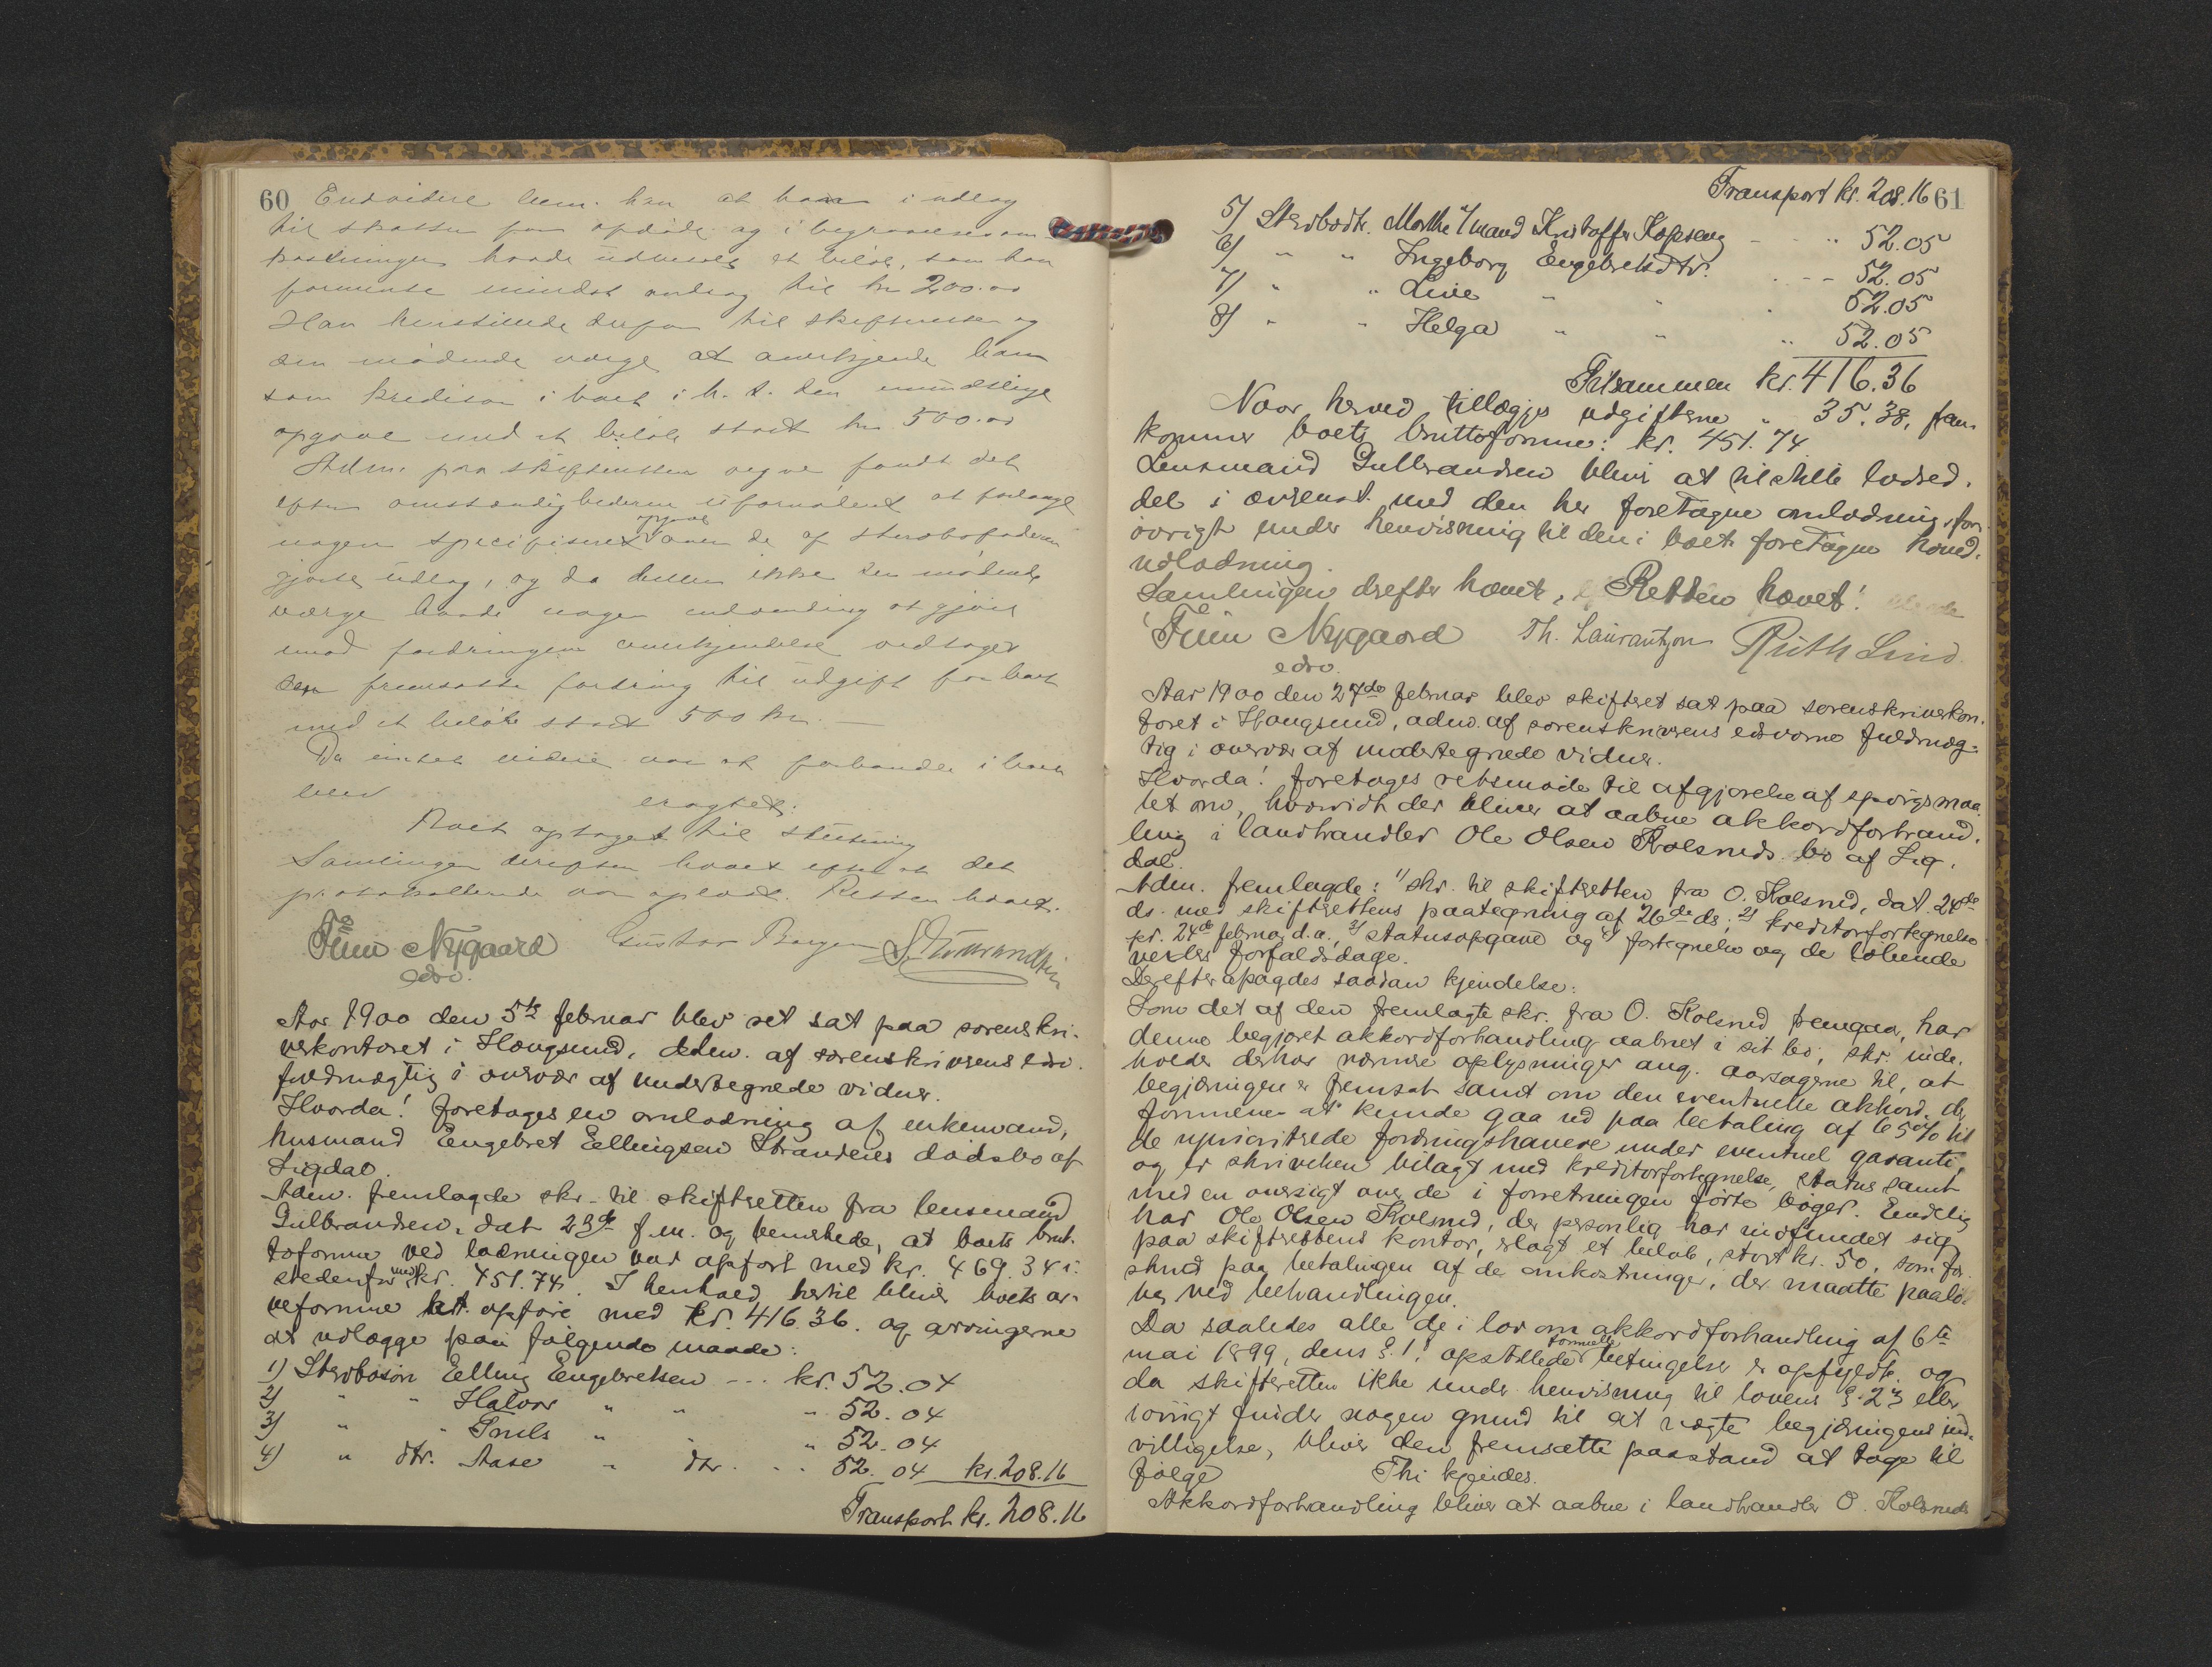 60 Endvidere bem. han at have i udlæg
til skatter for afdøde og i begravelsesom-
kostninger havde udbetalt et beløb, som han
formente mindst androg til kr 200.00
Han henstillede derfor til skifteretten og
den mødende værge at anerkjende ham
som kreditor i boet i h. t. den mundtlige
opgave med et beløb stort kr 500.00
Adm. paa skifterettens vegne fandt det
efter omstændighederne ufornødent at forlange
nogen specificeret opgave over de af sterbofaderen
gjorte udlæg, og da heller ikke den mødende
værge havde nogen indvending at gjøre
mod fordringens anerkjendelse vedtages
den fremsatte fordring til udgift for boet
med et beløb stort 500 kr. —
Da intet videre var at forhandle i boet
blev eragtet:
Boet optaget til slutning
Samlingen derefter hævet efter at det
protokollerede var oplæst. Retten hævet.
Finn Nygaard Gustav Borgen
edsv.
Aar 1900 den 5te februar blev ret sat paa sorenskri-
verkontoret i Hougsund, adm. af sorenskriverens edsv.
fuldmægtig i overvær af undertegnede vidner.
Hvorda! foretages en omlodning af enkemand,
husmand Engebret Ellingsen Strandeies dødsbo af
Sigdal.
Adm. fremlagde skr. til skifteretten fra lensmand
Gulbrandsen, dat. 23de f. m. og bemerkede, at boets brut-
toformue ved lodningen var opført med kr. 469.34 i-
stedenfor med kr. 451.74. I henhold hertil bliver boets ar-
veformue at opføre med kr. 416.36. og arvingerne
at udlægge paa følgende maade:
1) Sterbosøn Elling Engebretsen --- kr. 52.04
2) " " Halvor " " " 52.04
3) " " Truls " " " 52.04
4) " dtr. Aase " dtr. .. 52.04 kr. 208.16
Transport kr. 208.16
Transport kr. 208.16 61
5) Sterbodtr. Marthe r/ mand Kristoffer Kopseng - - " 52.05
6) " " Ingeborg Engebretsdtr. . - - 52.05
7) " " Live " " " 52.05
8) " " Helga " " " 52.05
Tilsammen kr. 416.36
Naar herved tillægges udgifterne " 35.38, frem-
kommer boets bruttoformue: kr. 451.74
Lensmand Gulbrandsen bliver at tilstille lodsed-
del i overenst. med den her foretagne omlodning, for-
øvrigt under henvisning til den i boet foretagne hoved-
udlodning.
Samlingen derefter hævet, Retten hævet!
Finn Nygaard Th. Laurantzon Ruth Lind.
edsv.
Aar 1900 den 27de februar blev skifteret sat paa sorenskriverkon-
toret i Hougsund, adm. af sorenskriverens edsvorne fuldmæg-
tig i overvær af undertegnede vidner.
Hvorda! foretages retsmøde til afgjørelse af spørgsmaa-
let om, hvorvidt der bliver at aabne akkordforhand-
ling i landhandler Ole Olsen Kolsruds bo af Sig-
dal.
Adm. fremlagde: 1) skr. til skifteretten fra O. Kolsrud, dat. 24de
ds. med skifterettens paategning af 26de ds; 2) kreditorfortegnelse
pr. 24de februar d. a., 3) statusopgave og 4) fortegnelse og de løbende
vexlers forfaldsdage.
Derefter afsagdes saadan kjendelse:
Som det af den fremlagte skr. fra O. Kolsrud fremgaar, har
denne begjæret akkordforhandling aabnet i sit bo; skr. inde-
holder derhos nærmere oplysninger ang. aarsagerne til, at
begjæringen er fremsat samt om den eventuelle akkord, der
formenes at kunde gaa ud paa betaling af 65% til
de upriotrede fordringshavere under eventuel garanti,
og er skrivelsen bilagt med kreditorfortegnelse, status samt
med en oversigt over de i forretningen førte bøger. Endelig
har Ole Olsen Kolsrud, der personlig har indfundet sig
paa skifterettens kontor, erlagt et beløb, stort kr. 50, som for-
skud paa betalingen af de omkostninger, der maatte paalø-
be ved behandlingen.
Da saaledes alle de i lov om akkordforhandling af 6te
mai 1899, dens §. 1. opstillede formelle betingelser er opfyldt, og
da skifteretten ikke under henvisning til lovens §. 23 eller
iøvrigt finder nogen grund til at nægte begjæringens ind-
villigelse, bliver den fremsatte paastand at tage til
følge Thi kjendes.
Akkordforhandling bliver at aabne i landhandler O. Kolsruds